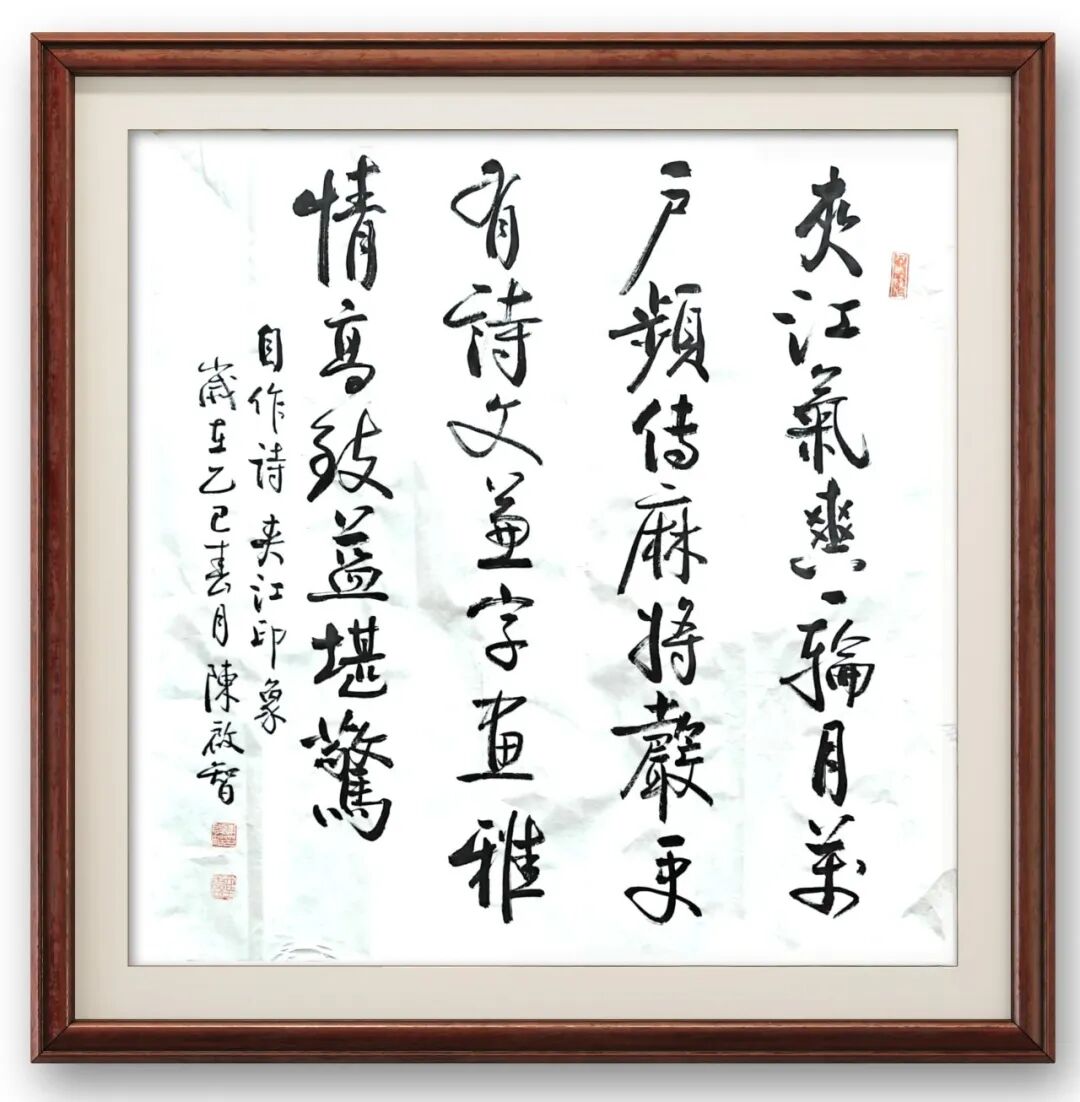 夾江氣爽一輪月萬
户頻傳麻將聲更
有詩文兼字畫雅
情高致益堪驚
自作詩夾江印象
歲在乙巳春月陳啟智